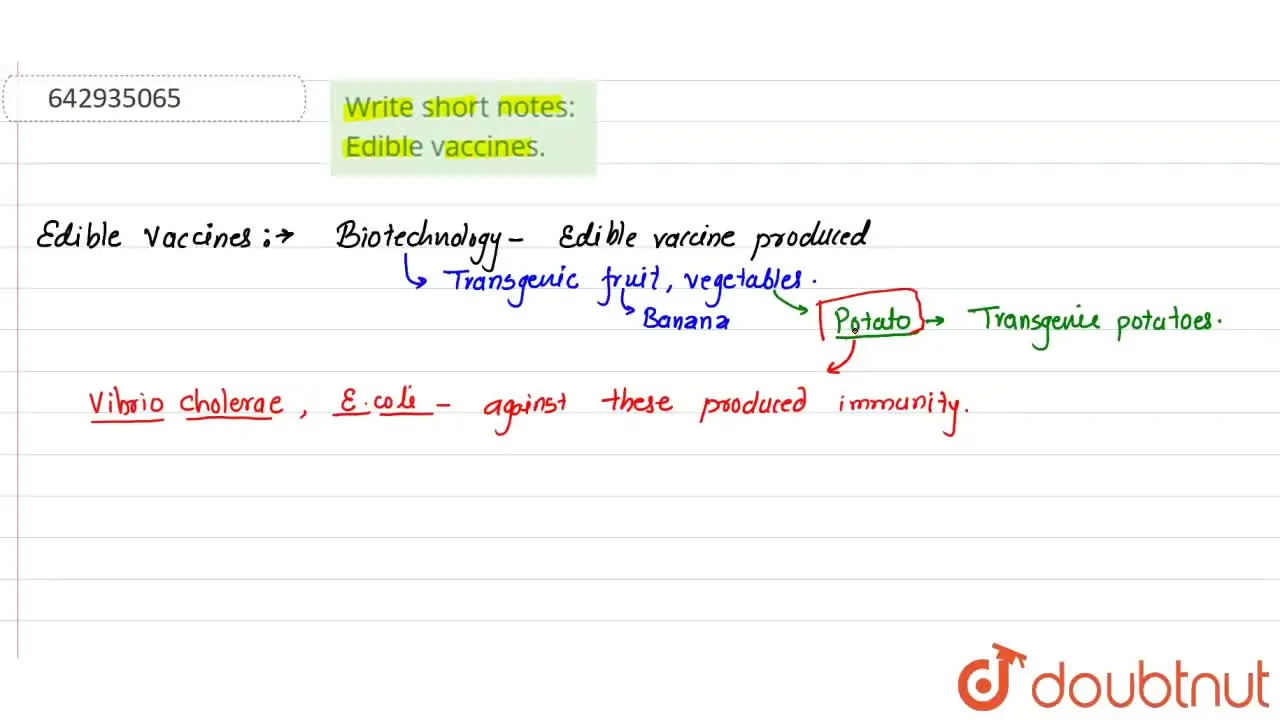 642935065
Write short notes:
Edible vaccines.
Edible Vaccines :→ Biotechnology - Edible vaccine produced
↳ Transgenic fruit, vegetables.
↳ Banana
→ Potato → Transgenic potatoes.
Vibrio cholerae, E.coli - against these produced immunity.
doubtnut